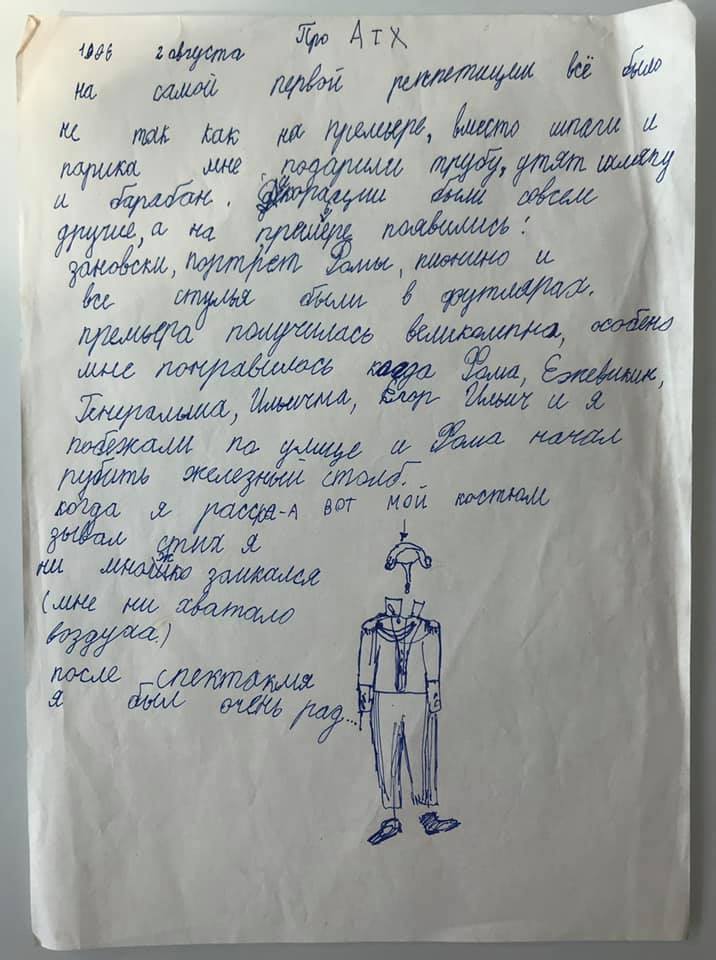 Про АТХ
1996 2 августа
на самой первой репетиции всё было
не так как на премьере, вместо шпаги и
парика мне подарили трубу, утят шляпу
и барабан. Декорации были совсем
другие, а на премьере появились:
зановски, портрет Фомы, пионино и
все стулья были в футлярах.
премьера получилась великолепна, особено
мне понравилось когда Фома, Ежевикин,
Генеральша, Ильична, Егор Ильич и я
побежали по улице и Фома начал
рубить железный столб.
когда я расска-
А вот мой костюм
зывал стих я
ни множко заикался
(мне ни хватало
воздуха.)
после спектакля
я был очень рад...